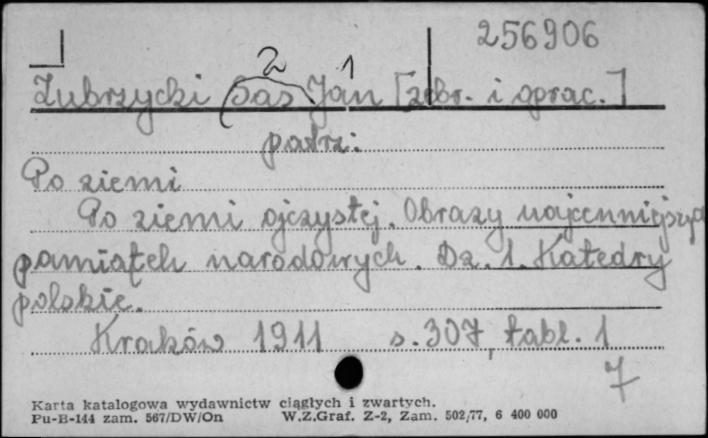 256906
2 1
Zubrzycki Sas Jan [zebr. i oprac.]
patrz:
Po ziemi
Po ziemi ojczystej. Obrazy najcenniejszych
pamiątek narodowych. Dz. 1. Katedry
polskie.
Kraków 1911 s. 307, tabl. 1
7
Karta katalogowa wydawnictw ciągłych i zwartych.
Pu-B-144 zam. 567/DW/On W.Z.Graf. Z-2, Zam. 502/77, 6 400 000